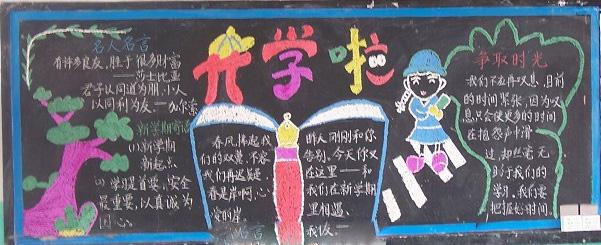 名人名言
有许多良友，胜于很多财富
——莎士比亚
君子以同道为朋，小人
以同利为友
新学期寄语
(1)新学期
新起点
(1)学习是首要，安全
最重要，以真诚为
圆心，
开学啦
春风拂起我
们的双桨，不容
我们再迟疑
春是岸啊，心
名言
昨天刚刚和你
告别，今天你又
在这里——和
我们在新学期
里相遇，
我友，
争取时光
我们不应再叹息，目前
的时间紧张，因为叹
息只会使更多的时间
在抱怨中滑
过，却丝毫无
助于我们的
学习，我们要
把握好时间